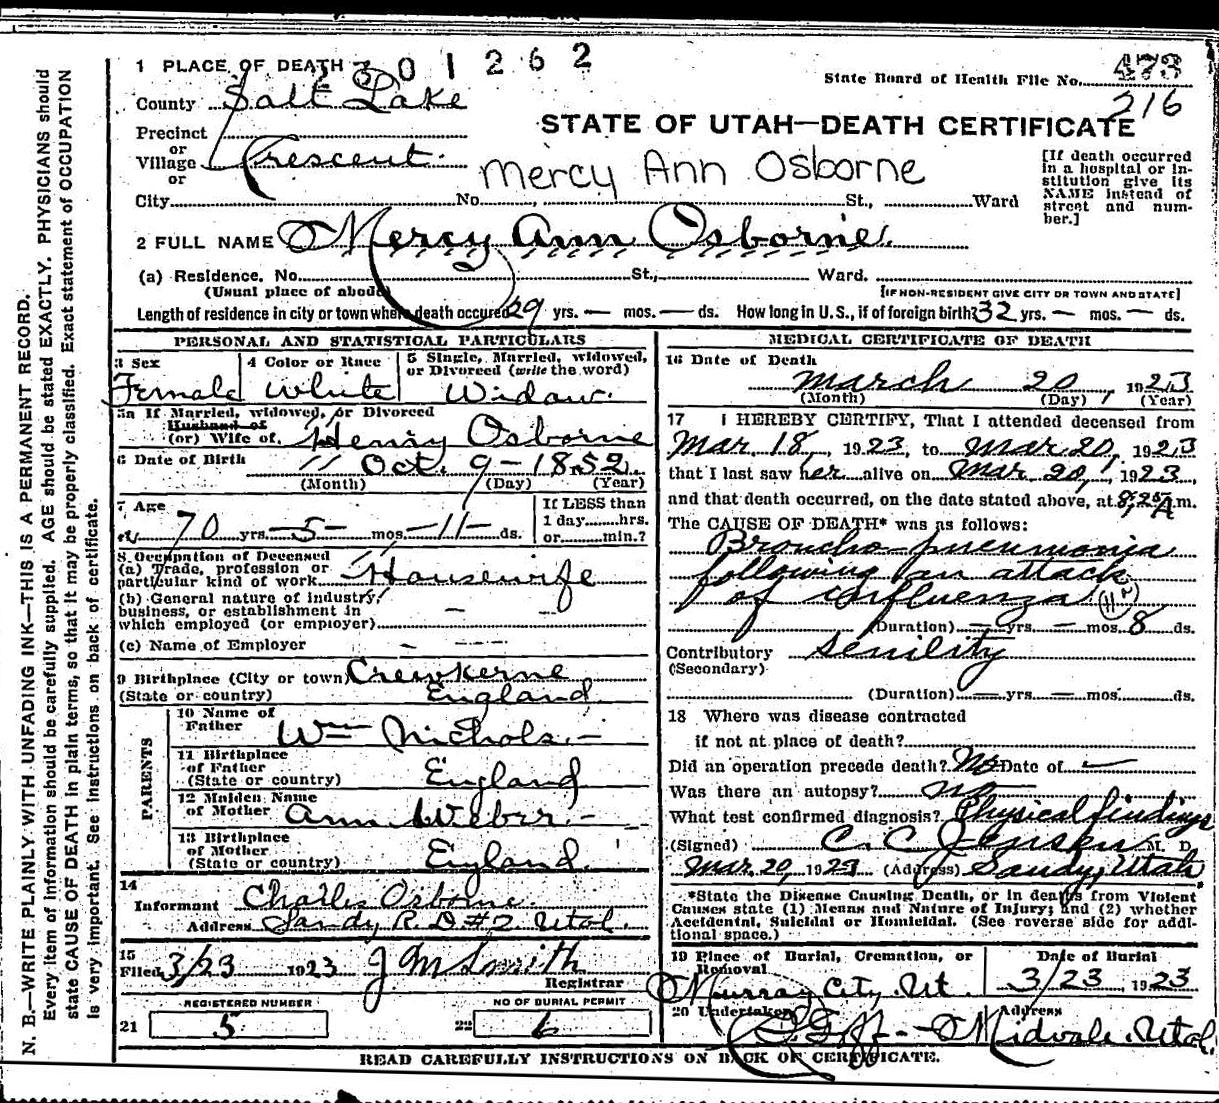 1 PLACE OF DEATH 3 0 1 2 6 2
State Board of Health File No. 473
216
County Salt Lake
STATE OF UTAH—DEATH CERTIFICATE
Precinct
or
Village Crescent
or
Mercy Ann Osborne
[If death occurred in a hospital or institution give its NAME instead of street and number.]
City No. St., Ward
2 FULL NAME Mercy Ann Osborne.
(a) Residence. No. St., Ward.
(Usual place of abode)
[IF NON-RESIDENT GIVE CITY OR TOWN AND STATE]
Length of residence in city or town where death occured 29 yrs. — mos. — ds. How long in U.S., if of foreign birth? 32 yrs. — mos. — ds.
PERSONAL AND STATISTICAL PARTICULARS
3 Sex
Female
4 Color or Race
White
5 Single, Married, widowed, or Divorced (write the word)
Widow.
5a If Married, widowed, or Divorced
Husband of
(or) Wife of. Henry Osborne
6 Date of Birth Oct. 9 - 1852
(Month) (Day) (Year)
7 Age
70 yrs. 5 mos. 11 ds.
If LESS than
1 day......hrs.
or......min.?
8 Occupation of Deceased
(a) Trade, profession or
particular kind of work Housewife
(b) General nature of industry,
business, or establishment in
which employed (or employer)
(c) Name of Employer
9 Birthplace (City or town) Crewkerne
(State or country) England
PARENTS
10 Name of
Father Wm Nichols.
11 Birthplace
of Father
(State or country) England
12 Maiden Name
of Mother Ann Weber.
13 Birthplace
of Mother
(State or country) England.
14
Informant Charles Osborne
Address Sandy R.D #2 Utah.
15
Filed 3/23 1923 J M Smith
Registrar
REGISTERED NUMBER NO OF BURIAL PERMIT
21 5 22 6
MEDICAL CERTIFICATE OF DEATH
16 Date of Death
March 20, 1923
(Month) (Day) (Year)
17 I HEREBY CERTIFY, That I attended deceased from
Mar. 18, 1923, to Mar 20, 1923
that I last saw her alive on Mar 20, 1923,
and that death occurred, on the date stated above, at 8:25 A m.
The CAUSE OF DEATH* was as follows:
Broncho-pneumonia
following an attack
of influenza
(Duration) — yrs. — mos. 8 ds.
Contributory Senility
(Secondary)
(Duration) — yrs. — mos. ds.
18 Where was disease contracted
if not at place of death?
Did an operation precede death? No Date of —
Was there an autopsy? no
What test confirmed diagnosis? Physical findings
(Signed) C. C. Jensen M. D.
Mar. 20, 1923 (Address) Sandy, Utah.
*State the Disease Causing Death, or in deaths from Violent
Causes state (1) Means and Nature of Injury; and (2) whether
Accidental, Suicidal or Homicidal. (See reverse side for additional space.)
19 Place of Burial, Cremation, or
Removal
Murray City. Ut.
Date of Burial
3/23, 1923
20 Undertaker Address
Midvale. Utah.
READ CAREFULLY INSTRUCTIONS ON BACK OF CERTIFICATE.
N. B.—WRITE PLAINLY WITH UNFADING INK—THIS IS A PERMANENT RECORD.
Every item of information should be carefully supplied. AGE should be stated EXACTLY. PHYSICIANS should
state CAUSE OF DEATH in plain terms, so that it may be properly classified. Exact statement of OCCUPATION
is very important. See instructions on back of certificate.